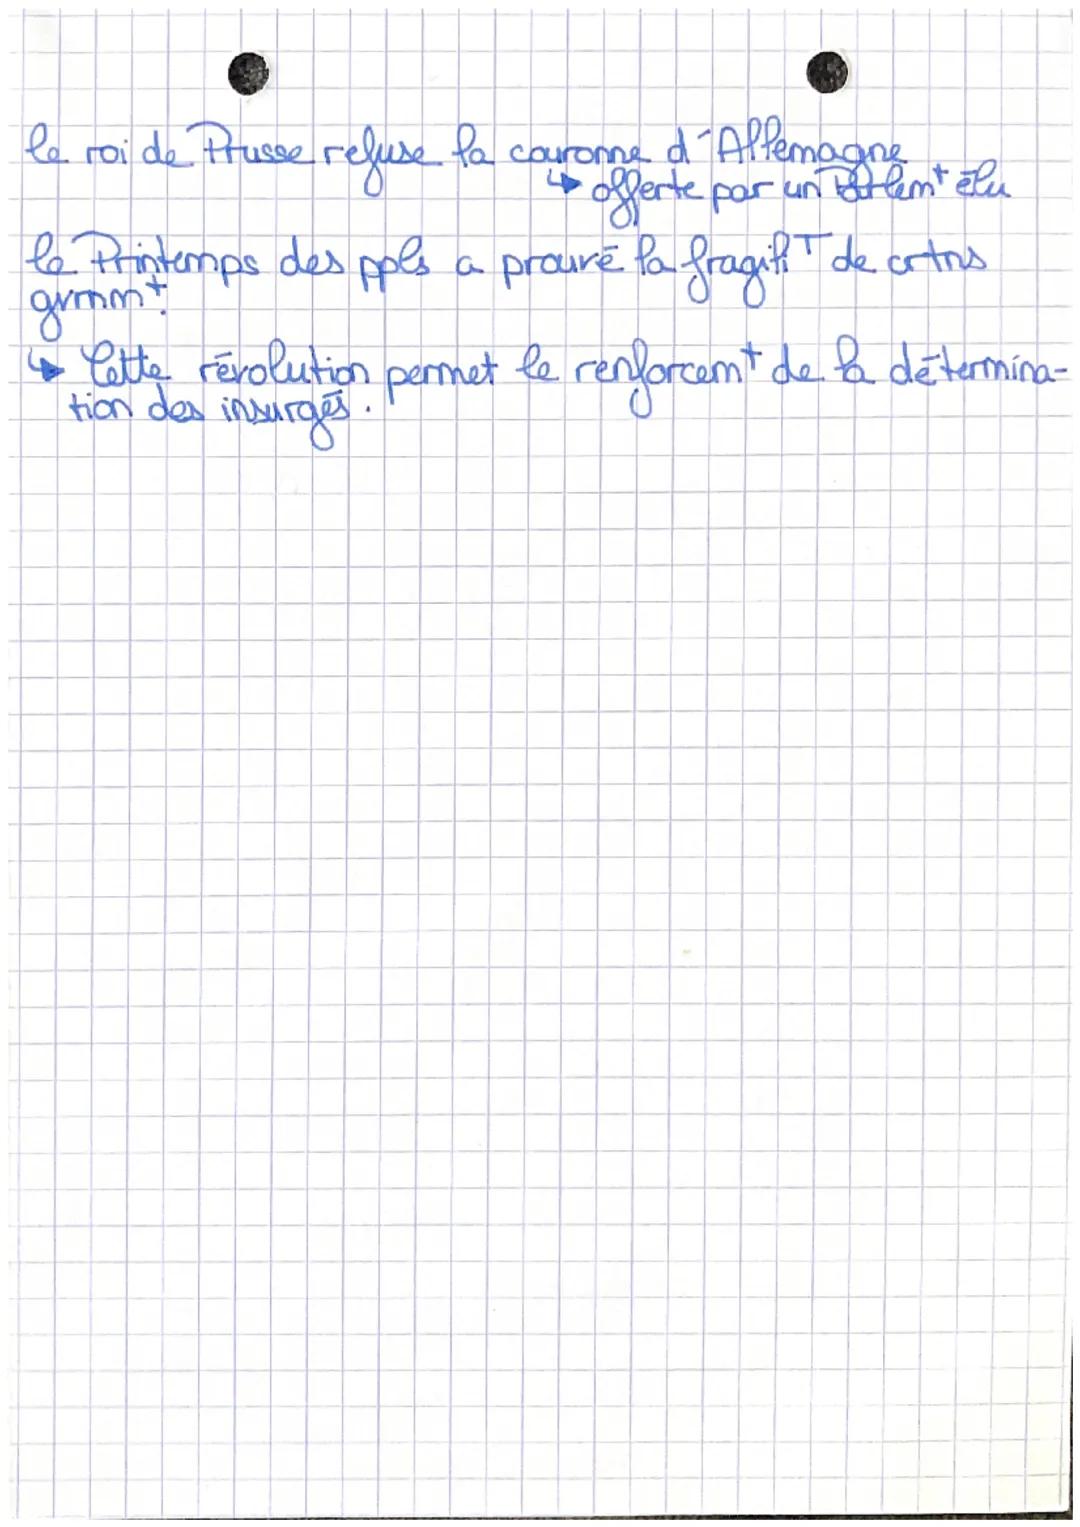 le roi de Prusse refuse la couronne d'Allemagne
↳ offerte par un Parlemt élu
le Printemps des ppls a prouvé la fragiliT de crtns
gvrnmt.
↳ Cette révolution permet le renforcemt de la détermina-
tion des insurgés.